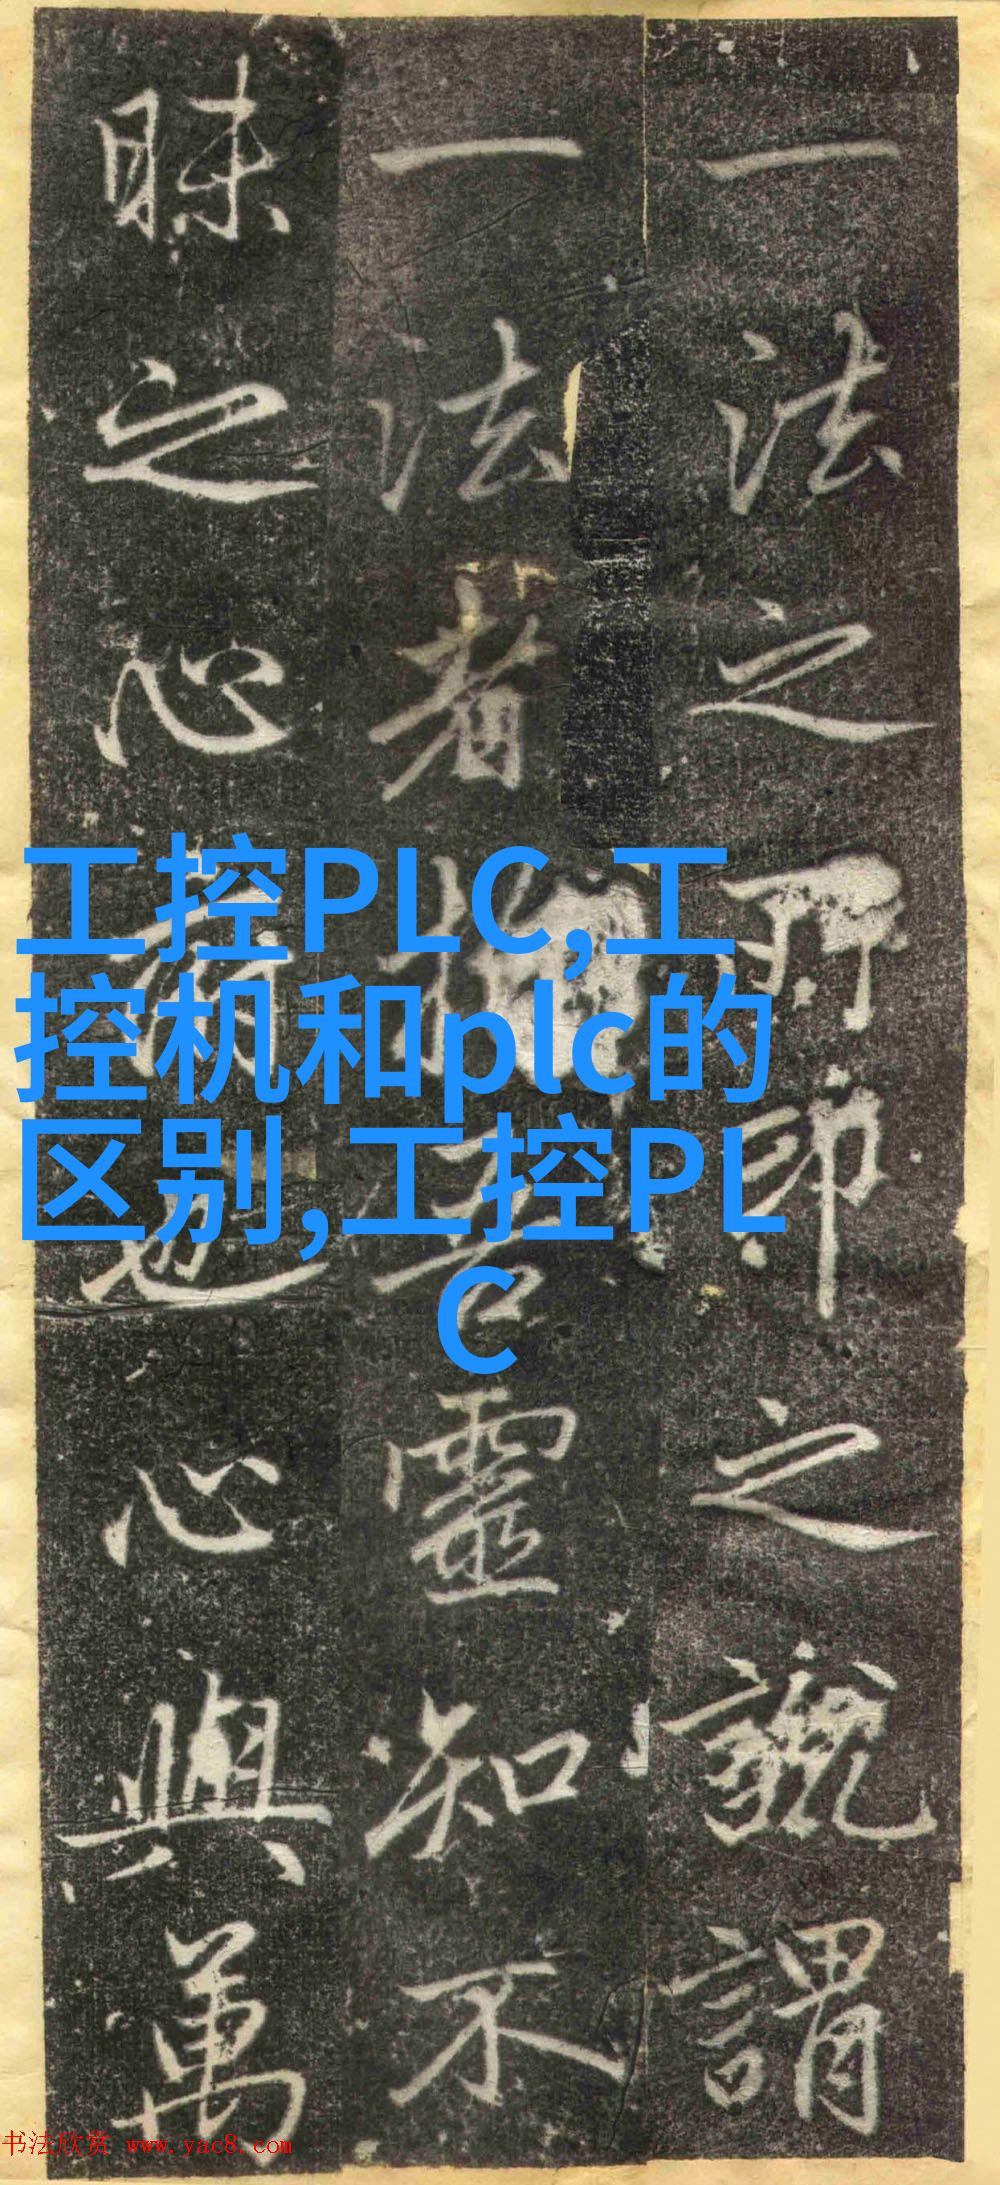 一法之所印之説謂
一法者吾靈知不
昧之心也心與萬
工控PLC,工
控机和plc的
区别,工控PL
C
书法欣赏 www.yac8.com